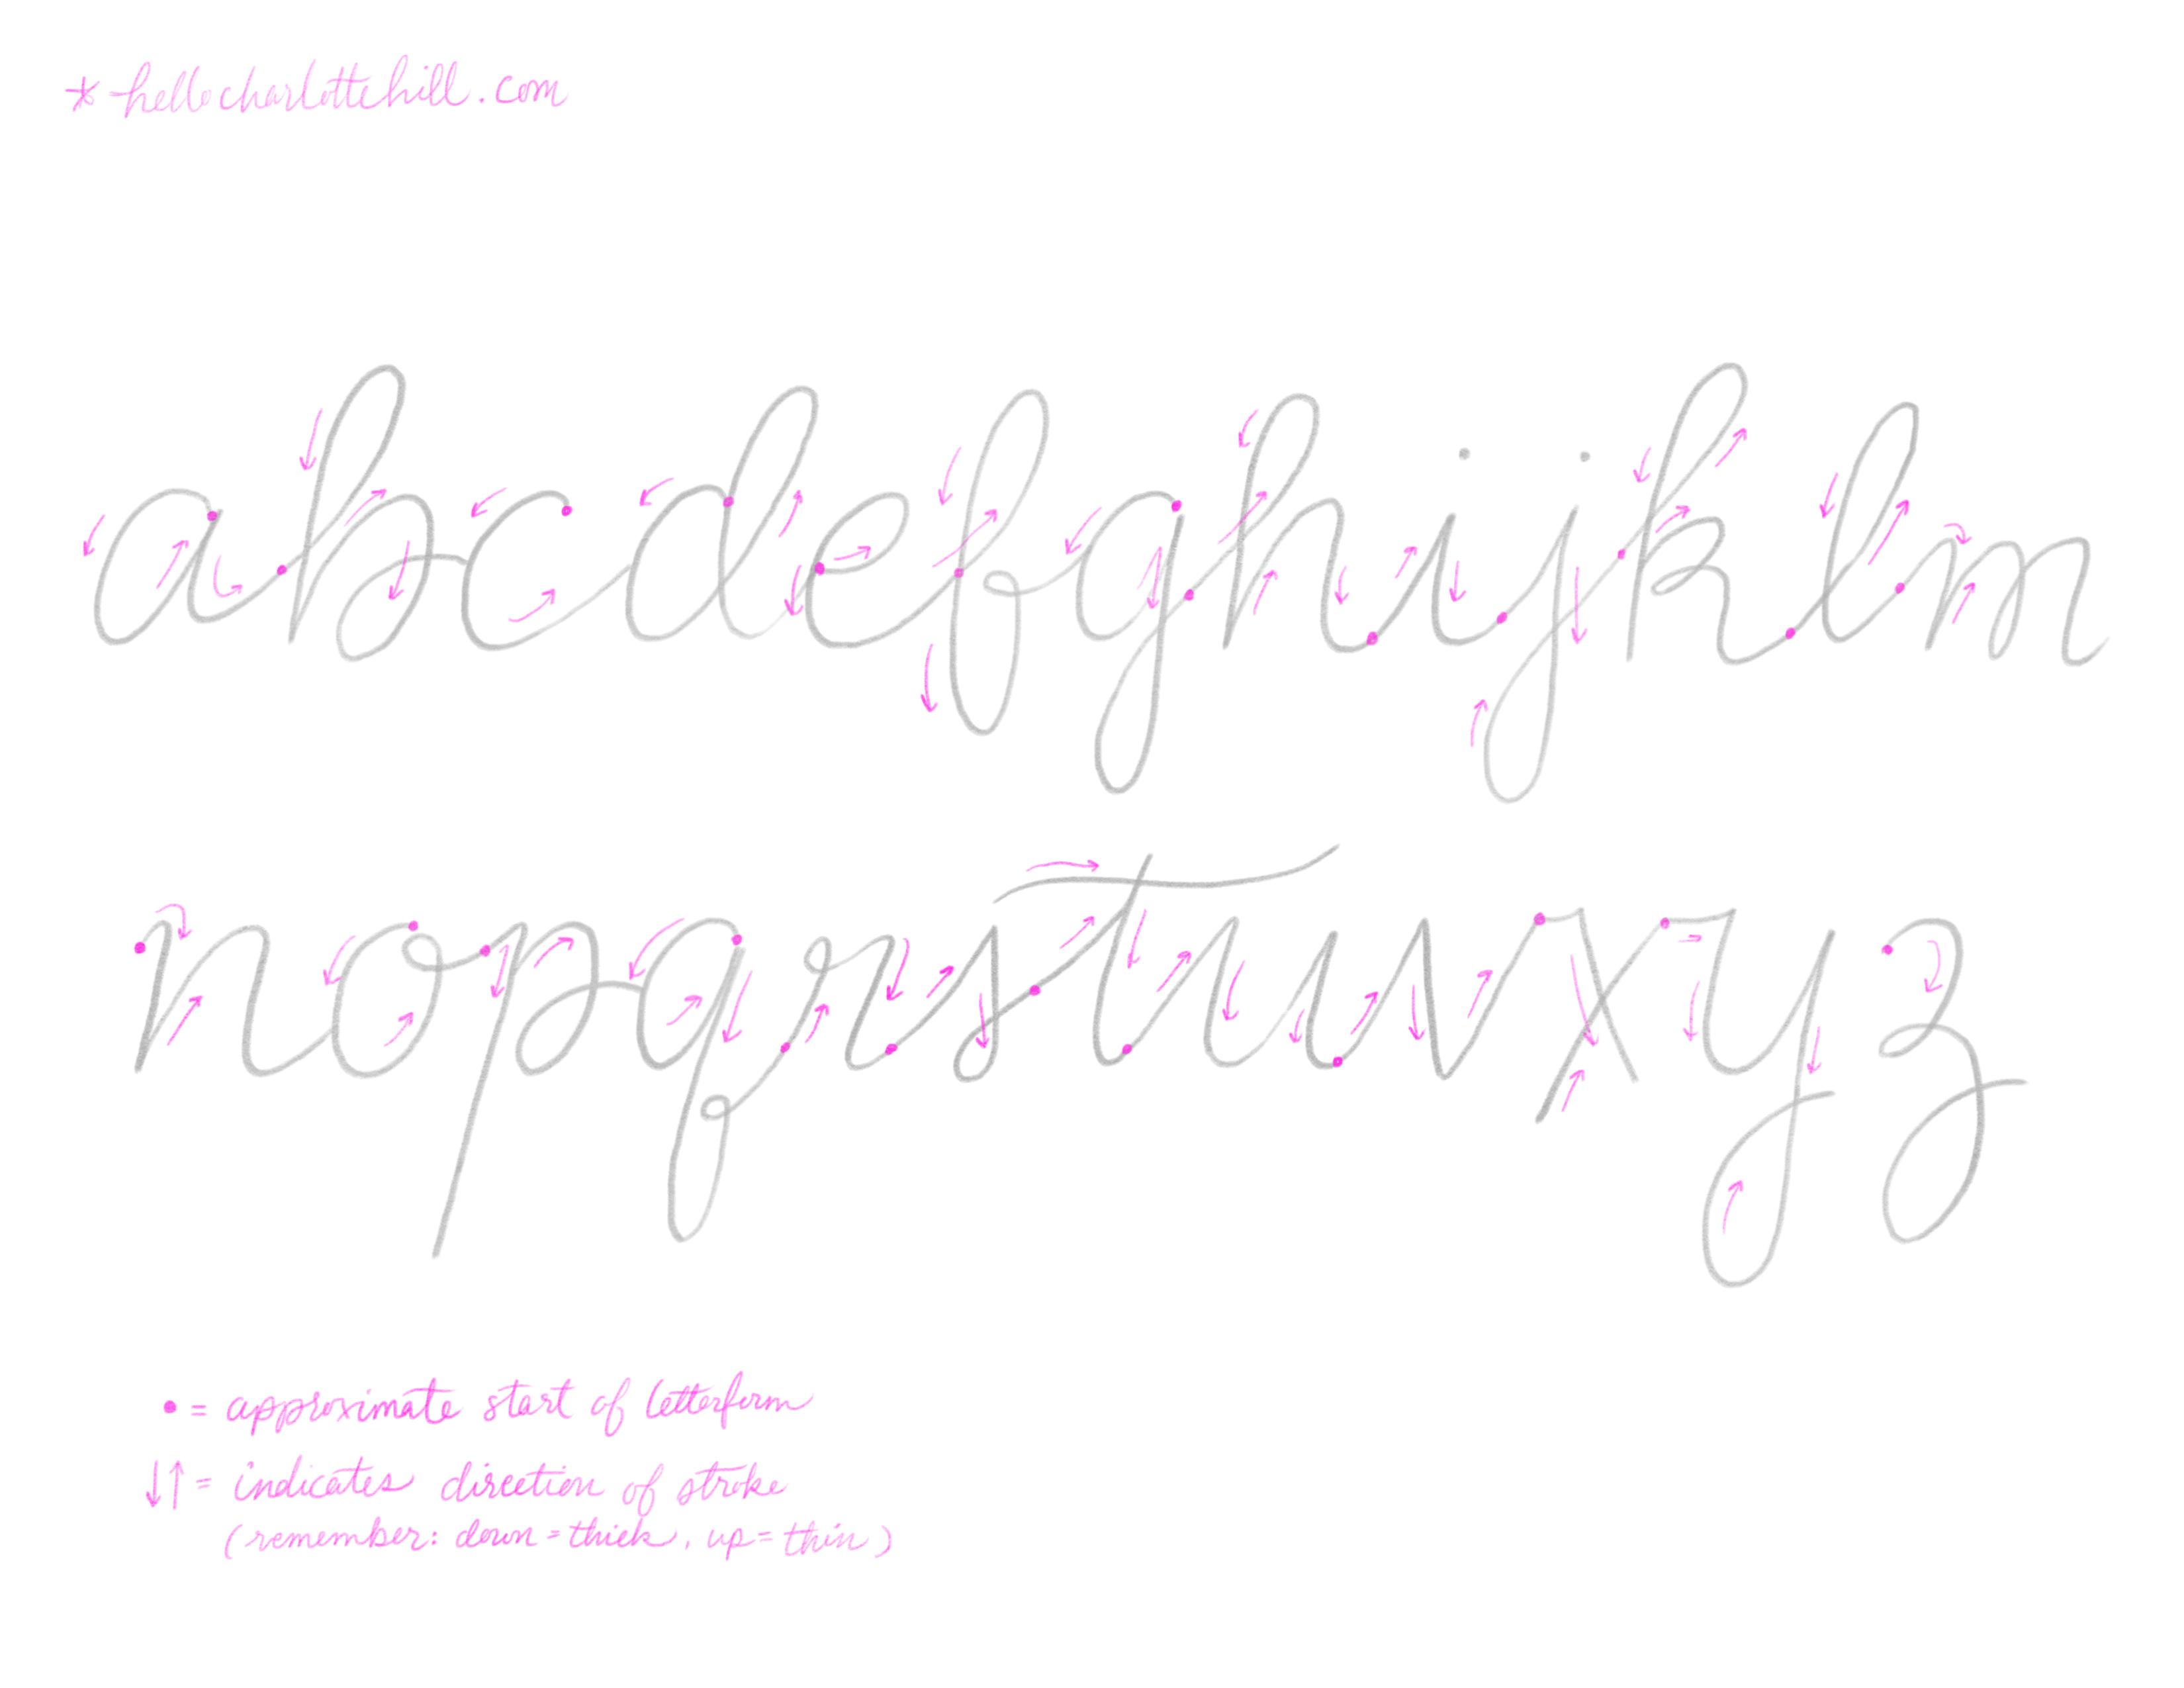 *hellocharlottehill.com
abcdefghijklm
nopqrstuvxyz
• = approximate start of letterform
↓↑ = indicates direction of stroke
(remember: down = thick, up = thin)